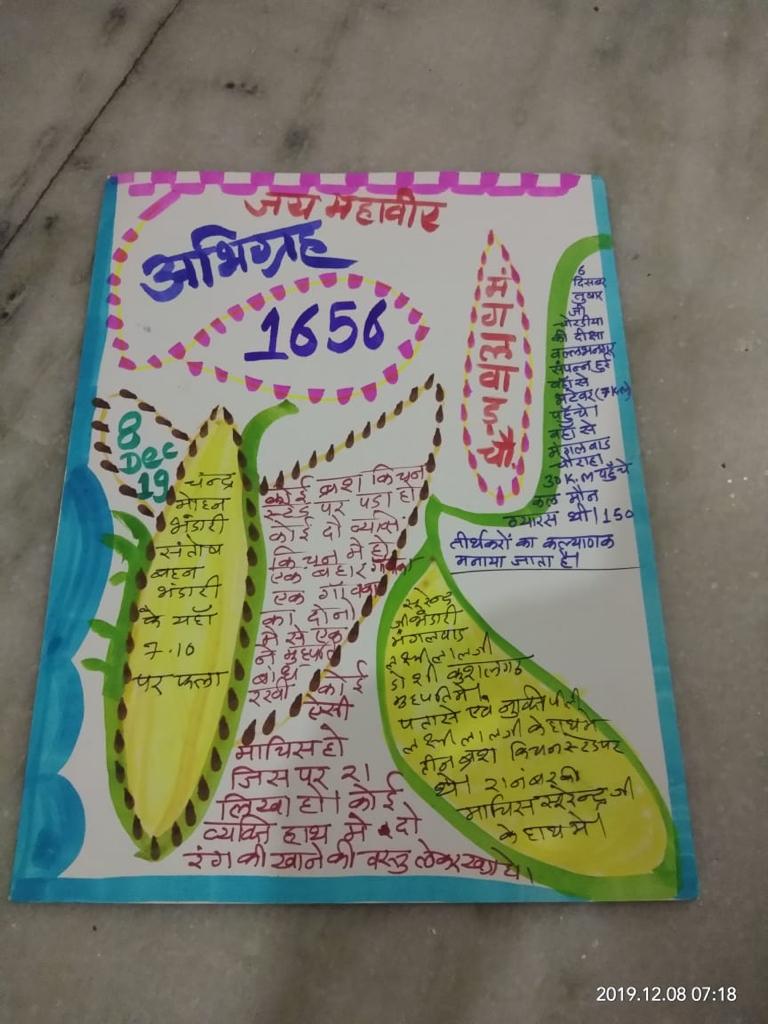 जय महावीर
अभिग्रह
1656
मंगलवाड़ चौ.
8
Dec
19
चन्द्र
मोहन
भंडारी
संतोष
बहन
भंडारी
के यहाँ
7.10
पर फला
कोई ब्रश किचन
स्टेंड पर पड़ा हो
कोई दो व्यक्ति
किचन में हो
एक बहार गांव का
एक गांव का
का दोनों
मे से एक
ने मुहपति
बांध
रखी कोई
ऐसी
माचिस हो
जिस पर २१
लिखा हो। कोई
व्यक्ति हाथ मे दो
रंग की खाने की वस्तु लेकर खड़ा हो।
6
दिसम्बर
तुषार
जी
बोरडीया
की दीक्षा
वल्लभनगर
संपन्न हुई
वहाँ से
भटेवर (7 Km)
पहुँचे।
वहाँ से
मंगलवाड
चौराहा
30 K.M पहुँचे
कल मौन
ग्यारस थी। 150
तीर्थकरों का कल्याणक
मनाया जाता है।
सुरेन्द्र
जी भंडारी
मंगलवाड
लक्ष्मीलालजी
डोशी कुशलगढ
मुहपति में।
पतासे एवं नुक्ति पीली
लक्ष्मीलालजी के हाथ मे
तीन ब्रश किचन स्टेंड पर
थे। २१ नंबर की
माचिस सुरेन्द्र जी
के हाथ में।
2019.12.08 07:18